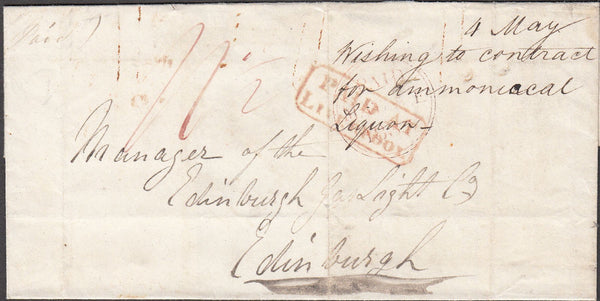 Paid
4 May
Wishing to contract
for ammoniacal
Liquor –
11½
PAID AT
LIVERPOOL
Manager of the
Edinburgh Gas Light Co
Edinburgh